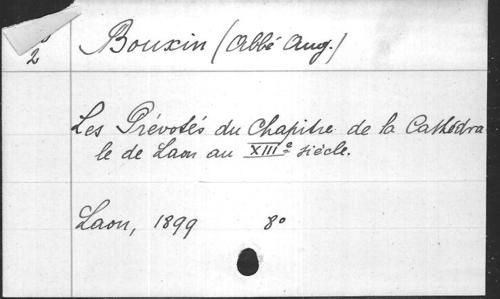 2
Bouxin (Abbé Aug.)
Les Prévotés du Chapitre de la Cathédra
le de Laon au XIIIe siècle.
Laon, 1899 8°